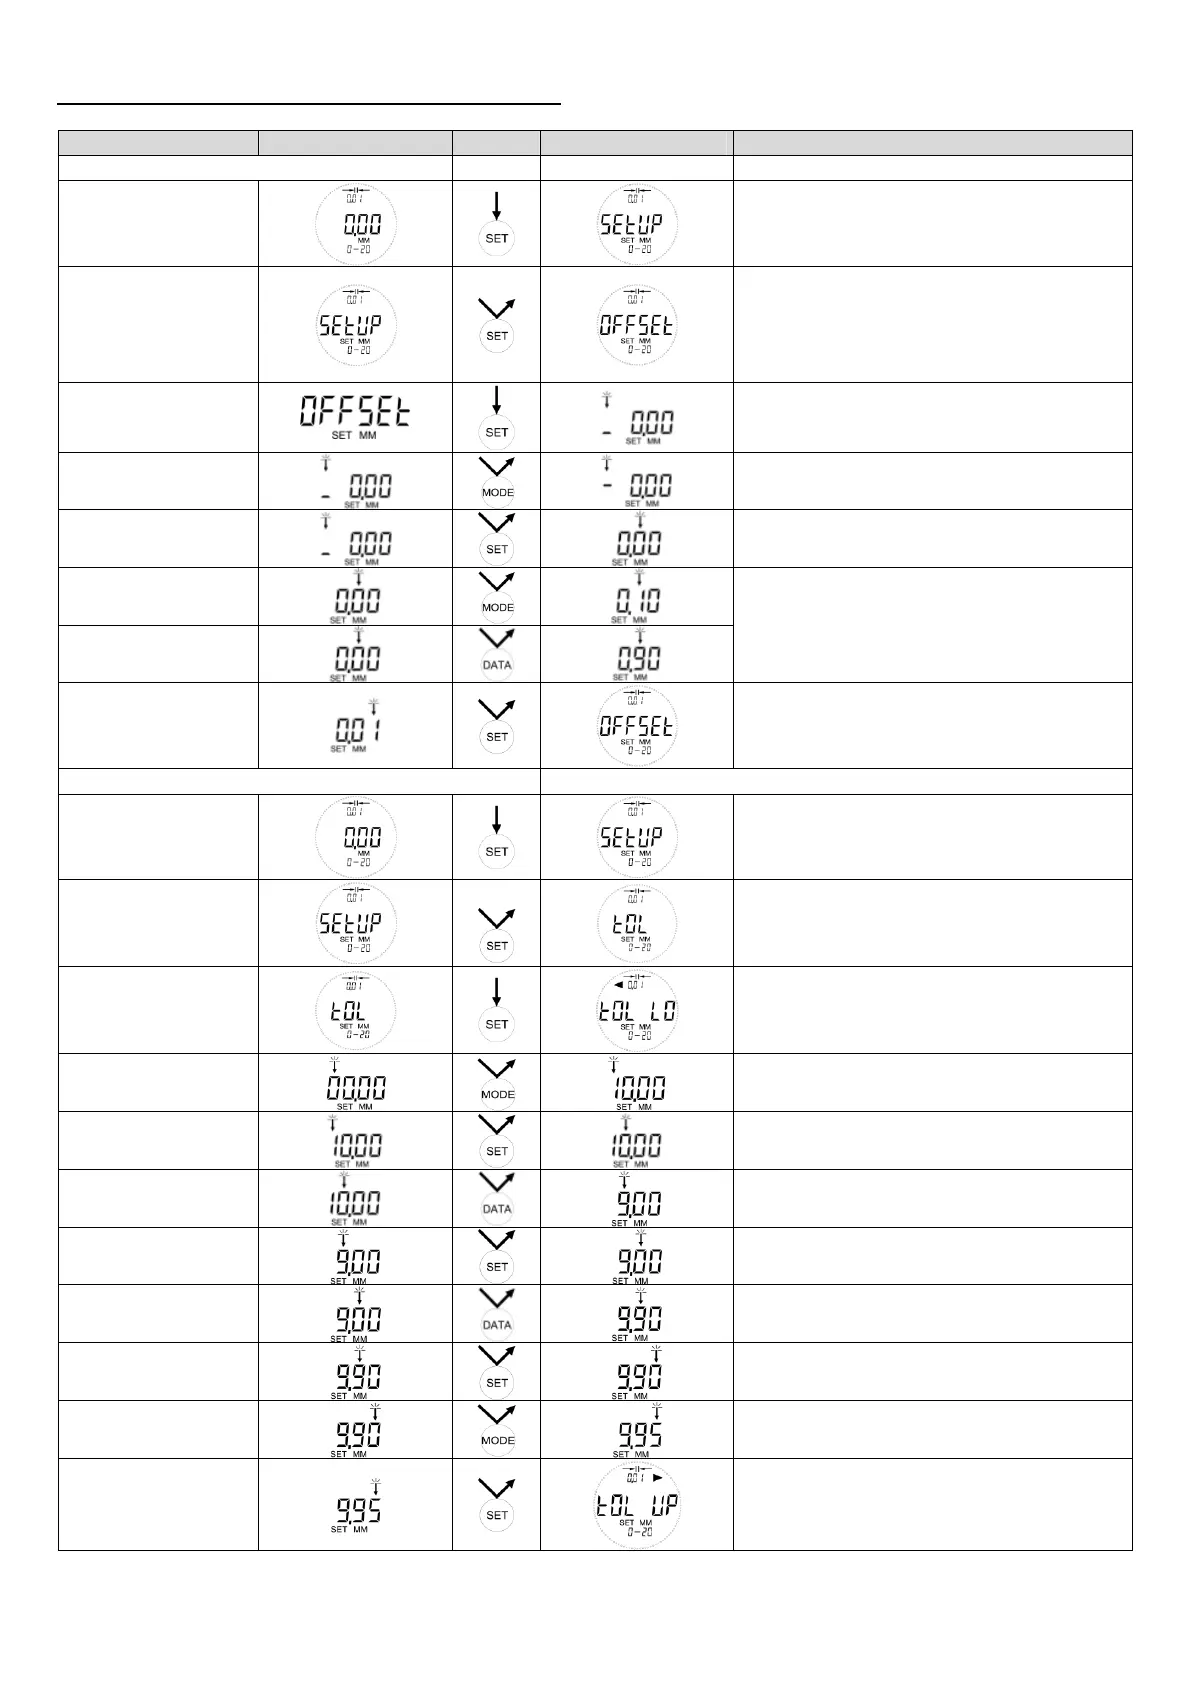 0.01
0.00
MM
0-20
SET
0.01
SEtUP
SET MM
0-20
0.01
SEtUP
SET MM
0-20
SET
0.01
OFFSEt
SET MM
0-20
OFFSEt
SET MM
SET
- 0.00
SET MM
- 0.00
SET MM
MODE
- 0.00
SET MM
- 0.00
SET MM
SET
0.00
SET MM
0.00
SET MM
MODE
0.10
SET MM
0.00
SET MM
DATA
0.90
SET MM
0.01
SET MM
SET
0.01
OFFSEt
SET MM
0-20
0.01
0.00
MM
0-20
SET
0.01
SEtUP
SET MM
0-20
0.01
SEtUP
SET MM
0-20
SET
0.01
tOL
SET MM
0-20
0.01
tOL
SET MM
0-20
SET
0.01
tOL LO
SET MM
0-20
00.00
SET MM
MODE
10.00
SET MM
10.00
SET MM
SET
10.00
SET MM
10.00
SET MM
DATA
9.00
SET MM
9.00
SET MM
SET
9.00
SET MM
9.00
SET MM
DATA
9.90
SET MM
9.90
SET MM
SET
9.90
SET MM
9.90
SET MM
MODE
9.95
SET MM
9.95
SET MM
SET
0.01
tOL UP
SET MM
0-20